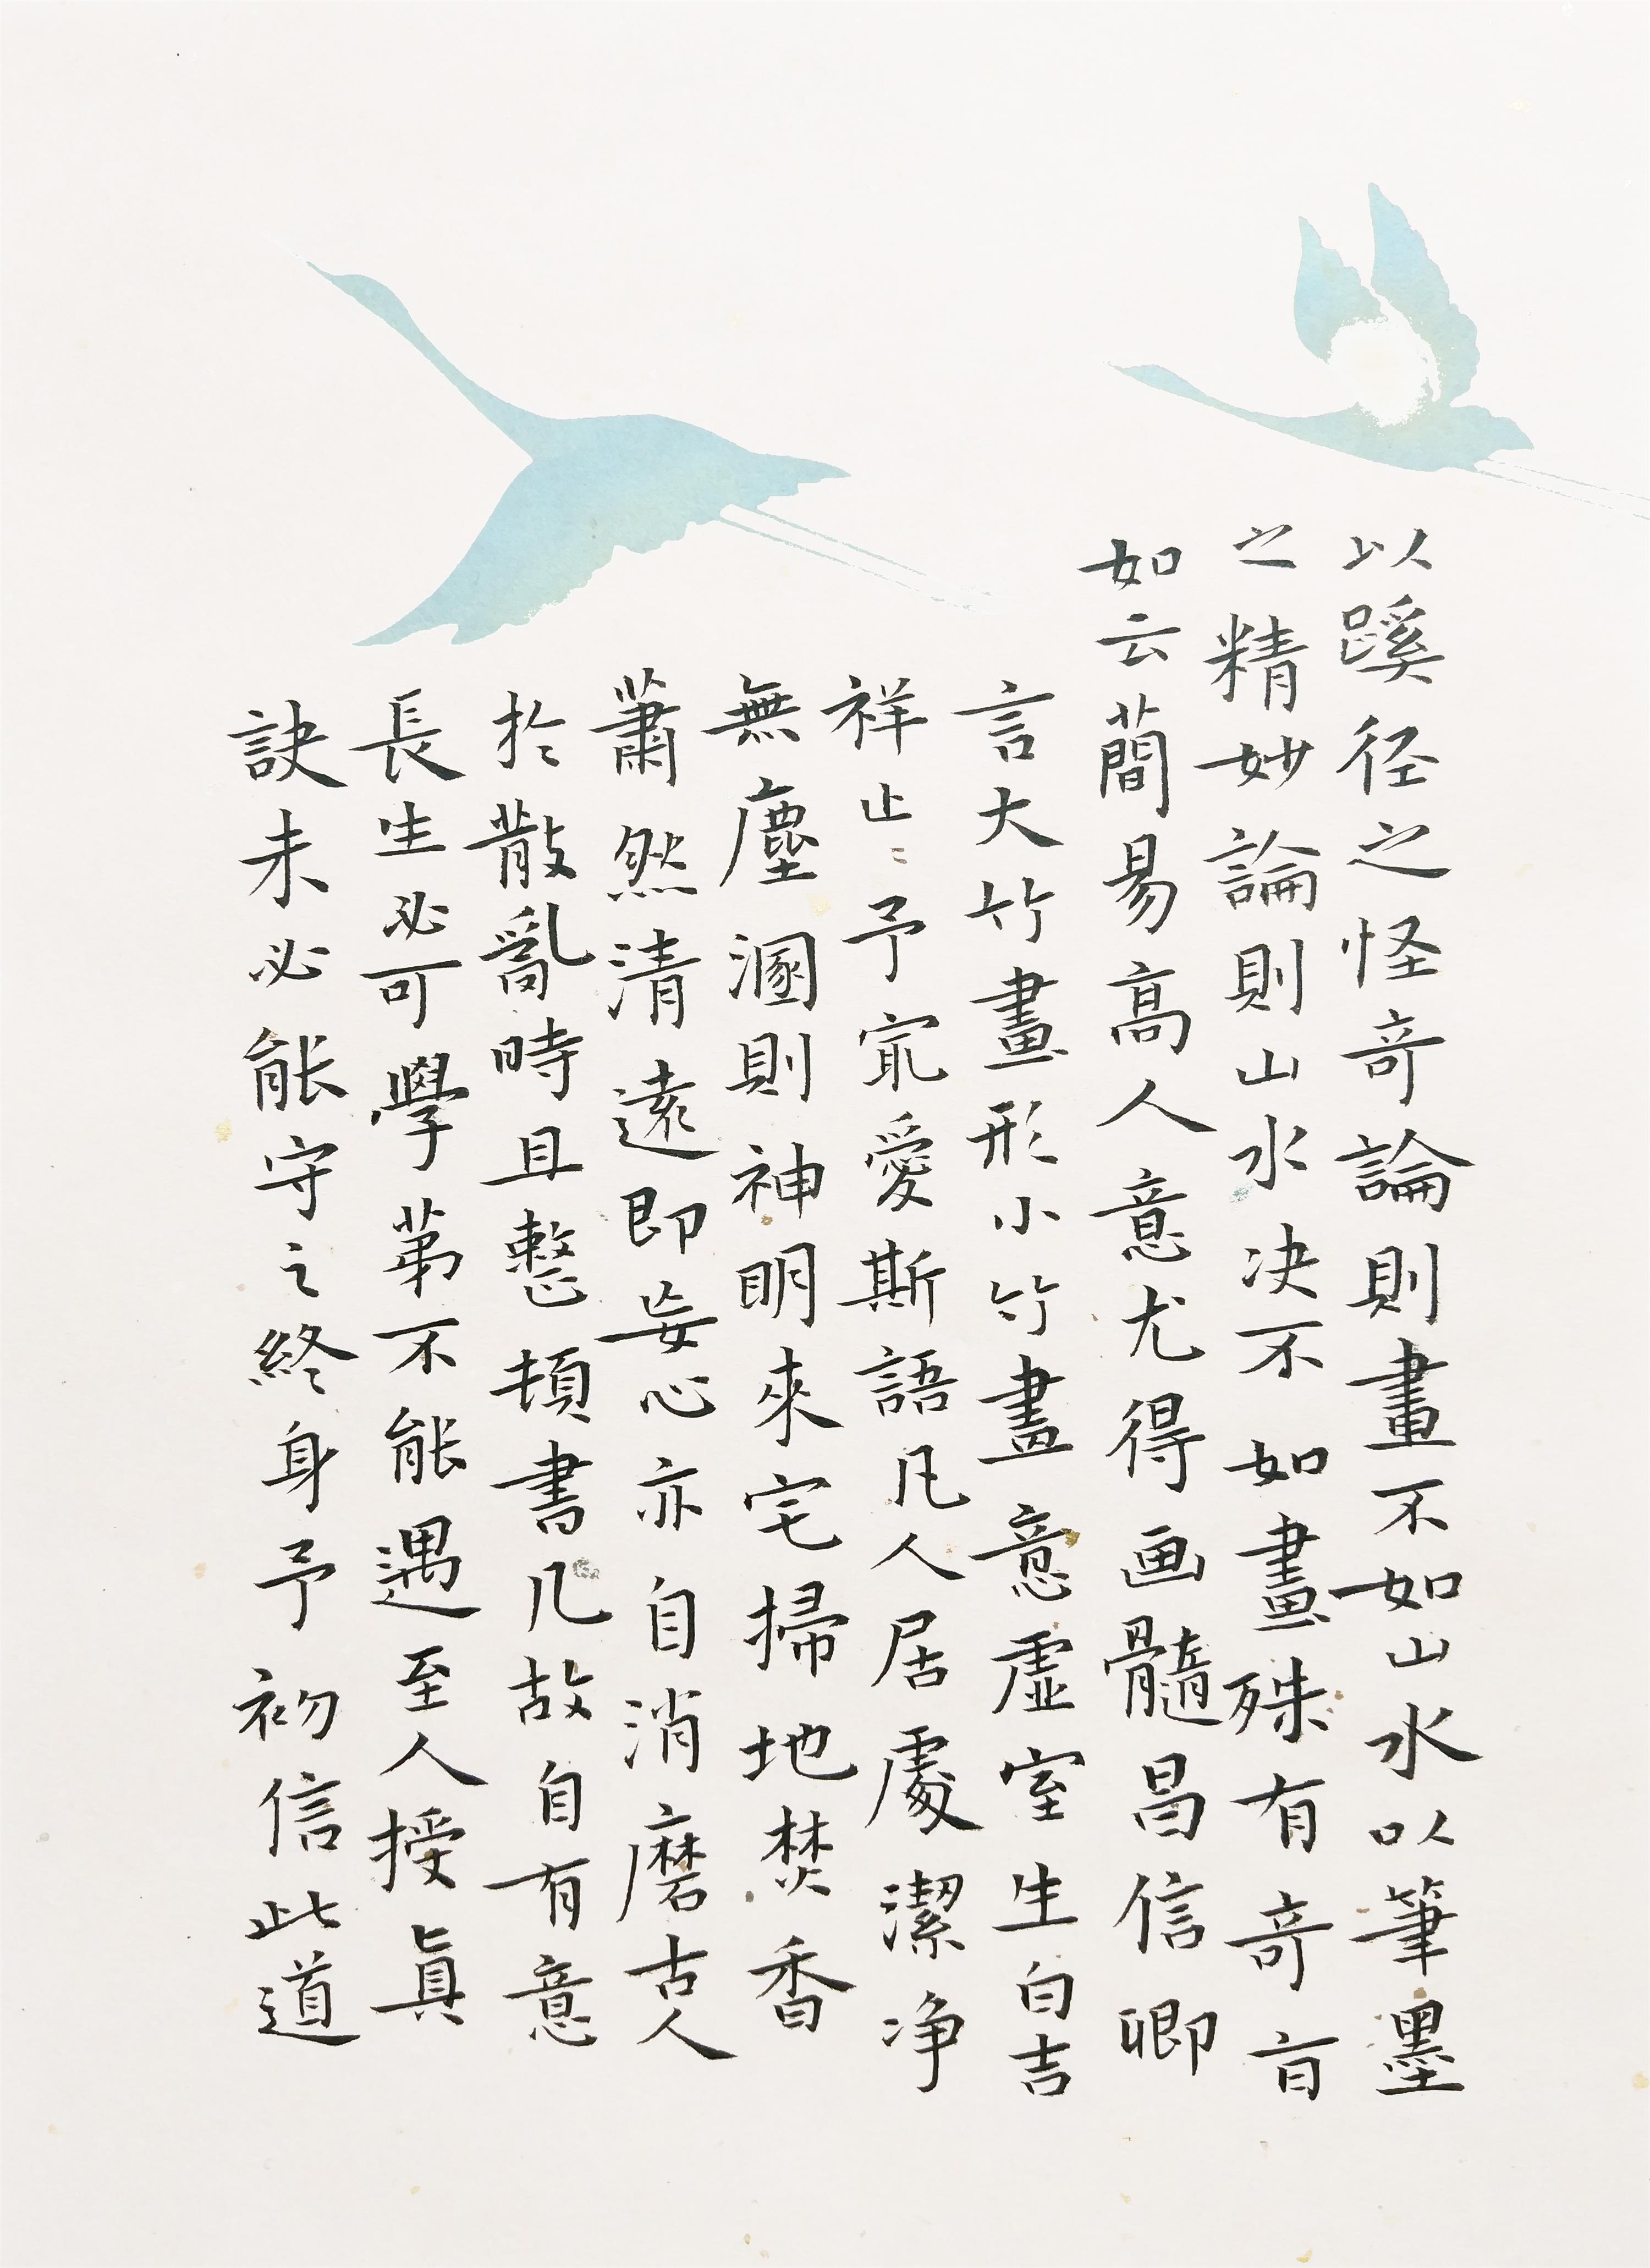 以蹊径之怪奇論則畫不如山水以筆墨
之精妙論則山水决不如畫殊有奇肓
如云蕳易高人意尤得画髓昌信卿
言大竹畫形小竹畫意虛室生白吉
祥止〻予寂愛斯語凡人居處潔净
無塵溷則神明來宅掃地焚香
蕭然清遠即妄心亦自消磨古人
扵散亂時且整頓書几故自有意
長生必可學苐不能遇至人授眞
訣未必能守之終身予初信此道